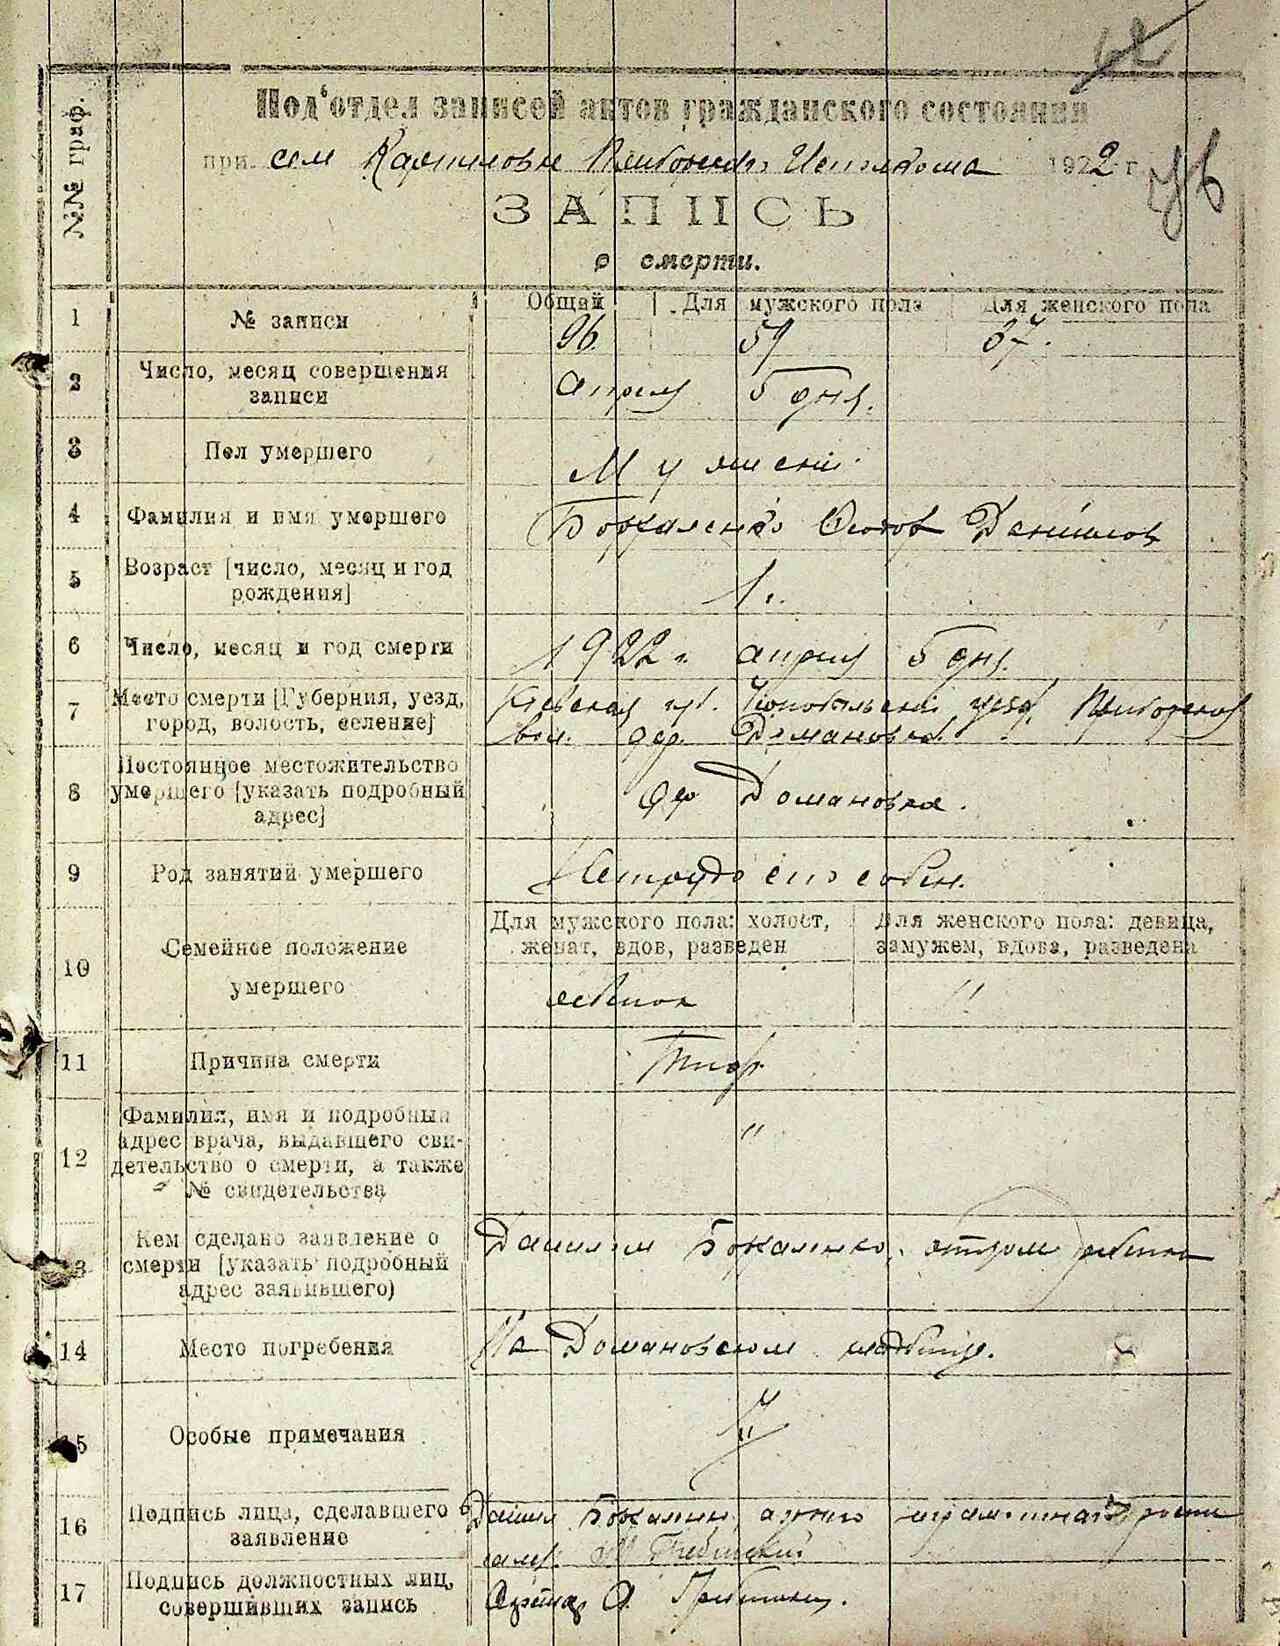 62
Под'отдел записей актов гражданского состояния
при сел Исполкома 1922 г
№№ граф.
ЗАПИСЬ
о смерти.
Общий Для мужского пола Для женского пола
1 № записи 96. 59 37.
2 Число, месяц совершения записи апреля 5 дня.
3 Пол умершего Мужеский
4 Фамилия и имя умершего Данилов
5 Возраст [число, месяц и год рождения] 1 г.
6 Число, месяц и год смерти 1922 г. апреля 5 дня.
7 Место смерти [Губерния, уезд, город, волость, селение] Киевская губ. Чернобыльский уезд. Приборская
вол. дер. Домановка.
8 Постоянное местожительство умершего [указать подробный адрес] дер Домановка.
9 Род занятий умершего Нетрудоспособен.
10 Семейное положение умершего
Для мужского пола: холост, женат, вдов, разведен
Для женского пола: девица, замужем, вдова, разведена
ребенок "
11 Причина смерти Тиф.
12 Фамилия, имя и подробный адрес врача, выдавшего свидетельство о смерти, а также № свидетельства "
13 Кем сделано заявление о смерти [указать подробный адрес заявившего) Данилом Божаленко, отцом ребенка
14 Место погребения На Домановском кладбище.
15 Особые примечания "
16 Подпись лица, сделавшего заявление Данил
17 Подпись должностных лиц, совершивших запись